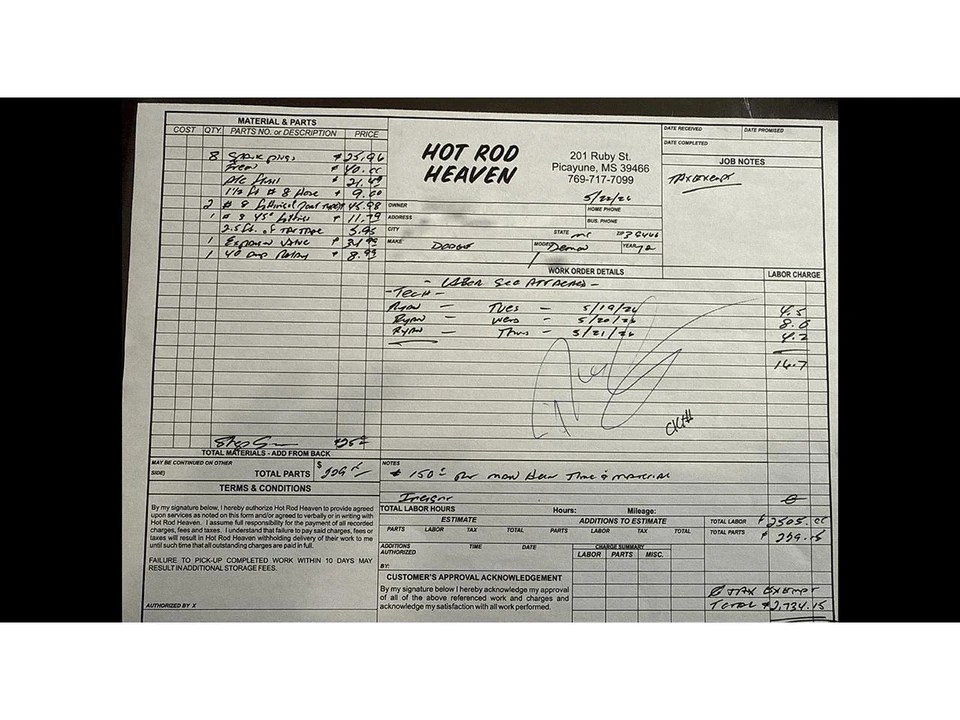 MATERIAL & PARTS
COST QTY. PARTS NO. or DESCRIPTION PRICE
8 Spark plugs $25.96
Freon $40.00
A/C
1 1/2 ft # 8 Hose 9.00
2 # 8 45.98
1 # 8 45° fitting 11.79
2.5 ft. of Tar Tape 5.95
1 Expansion Valve
1 40 amp Relay 8.99
$25
TOTAL MATERIALS - ADD FROM BACK
MAY BE CONTINUED ON OTHER SIDE)
TOTAL PARTS $
TERMS & CONDITIONS
By my signature below, I hereby authorize Hot Rod Heaven to provide agreed
upon services as noted on this form and/or agreed to verbally or in writing with
Hot Rod Heaven. I assume full responsibility for the payment of all recorded
charges, fees and taxes. I understand that failure to pay said charges, fees or
taxes will result in Hot Rod Heaven withholding delivery of their work to me
until such time that all outstanding charges are paid in full.
FAILURE TO PICK-UP COMPLETED WORK WITHIN 10 DAYS MAY
RESULT IN ADDITIONAL STORAGE FEES.
AUTHORIZED BY X
HOT ROD
HEAVEN
201 Ruby St.
Picayune, MS 39466
769-717-7099
5/22/26
OWNER HOME PHONE
ADDRESS BUS. PHONE
CITY STATE ms ZIP 39466
MAKE Dodge MODEL Demon YEAR 72
DATE RECEIVED DATE PROMISED
DATE COMPLETED
JOB NOTES
Tax Exempt
WORK ORDER DETAILS LABOR CHARGE
- Labor See Attached -
- Tech -
Ryan - Tues - 5/19/26 4.5
Ryan - Weds - 5/20/26 8.0
Ryan - Thurs - 5/21/26 4.2
16.7
CK#
NOTES
$150 per man hour Time & material
TOTAL LABOR HOURS Hours: Mileage:
ESTIMATE ADDITIONS TO ESTIMATE TOTAL LABOR $2505.00
PARTS LABOR TAX TOTAL PARTS LABOR TAX TOTAL TOTAL PARTS $
ADDITIONS AUTHORIZED TIME DATE
BY:
CHARGE SUMMARY
LABOR PARTS MISC.
CUSTOMER'S APPROVAL ACKNOWLEDGEMENT
By my signature below I hereby acknowledge my approval
of all of the above referenced work and charges and
acknowledge my satisfaction with all work performed.
Tax Exempt
Total $2,734.15